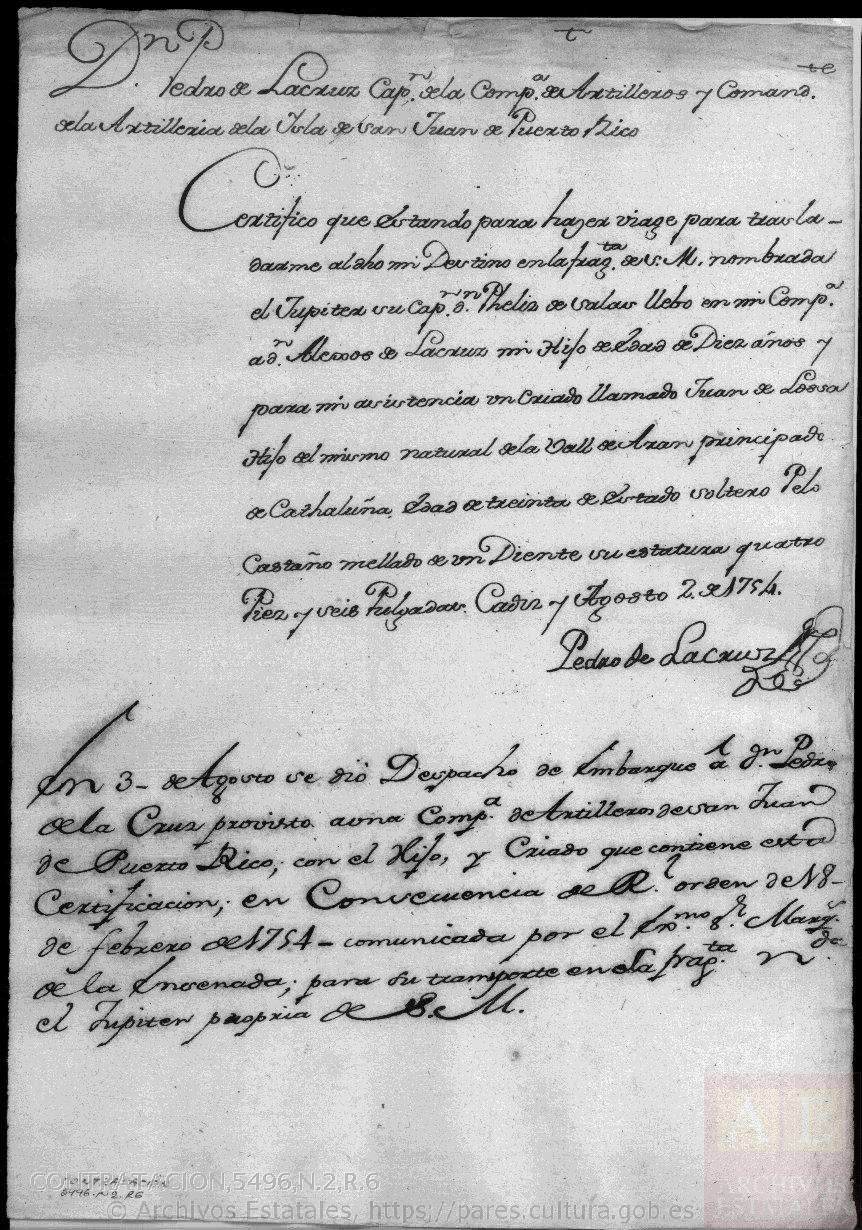 Dn Pedro de Lacruz Capn. dela Compa. de Artilleros y Comand.
dela Artilleria dela Isla de san Juan de Puerto Rico
Certifico que Estando para hazer viage para trasla-
darme al dho mi Destino en la fragta. de S. M. nombrada
el Jupiter su Capn. dn. Phelix de Salas llebo en mi Compa.
a dn. Alexos de Lacruz mi Hijo de Edad de Diez años y
para mi asistencia vn Criado llamado Juan de Lossa
Hijo del mismo natural dela Vall de Aran principado
de Cathaluña, Edad de treinta de Estado soltero Pelo
Castaño mellado de vn Diente su estatura quatro
Piez y seis Pulgadas. Cadiz y Agosto 2. de 1754.
Pedro de Lacruz
En 3- de Agosto se dió Despacho de Embarque à dn Pedro
de la Cruz provisto a una Compa. de Artilleros de san Juan
de Puerto Rico; con el Hijo, y Criado que contiene esta
Certificacion; en Consecuencia de Rl. orden de 18-
de febrero de 1754- comunicada por el Exmo. Sr. Marqs.
de la Ensenada; para su transporte en la fragta. nda.
el Jupiter propria de S. M.
CONTRATACION
5496.N.2.R6
CONTRATACION,5496,N.2,R.6
© Archivos Estatales, https://pares.cultura.gob.es
AE
ARCHIVOS
ESTATALES